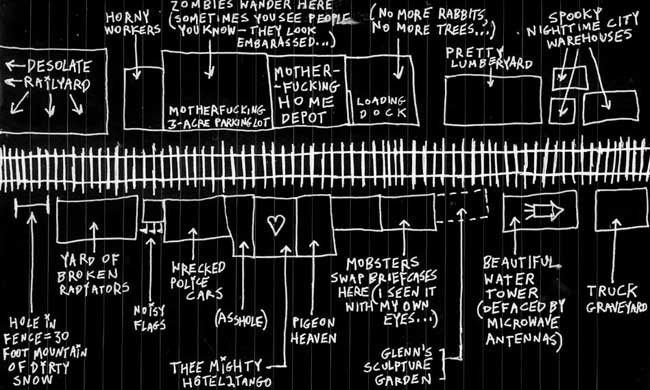 HORNY
WORKERS
ZOMBIES WANDER HERE
(SOMETIMES YOU SEE PEOPLE
YOU KNOW – THEY LOOK
EMBARASSED...)
(NO MORE RABBITS,
NO MORE TREES...)
PRETTY
LUMBERYARD
SPOOKY
NIGHTTIME CITY
WAREHOUSES
← DESOLATE
← RAILYARD
MOTHERFUCKING
3-ACRE PARKING LOT
MOTHER-
-FUCKING
HOME
DEPOT
LOADING
DOCK
HOLE IN
FENCE = 30
FOOT MOUNTAIN
OF DIRTY
SNOW
YARD OF
BROKEN
RADIATORS
NOISY
FLAGS
WRECKED
POLICE
CARS
(ASSHOLE)
THEE MIGHTY
HOTEL2TANGO
PIGEON
HEAVEN
MOBSTERS
SWAP BRIEFCASES
HERE (I SEEN IT
WITH MY OWN
EYES...)
GLENN'S
SCULPTURE
GARDEN
BEAUTIFUL
WATER
TOWER
(DEFACED BY
MICROWAVE
ANTENNAS)
TRUCK
GRAVEYARD